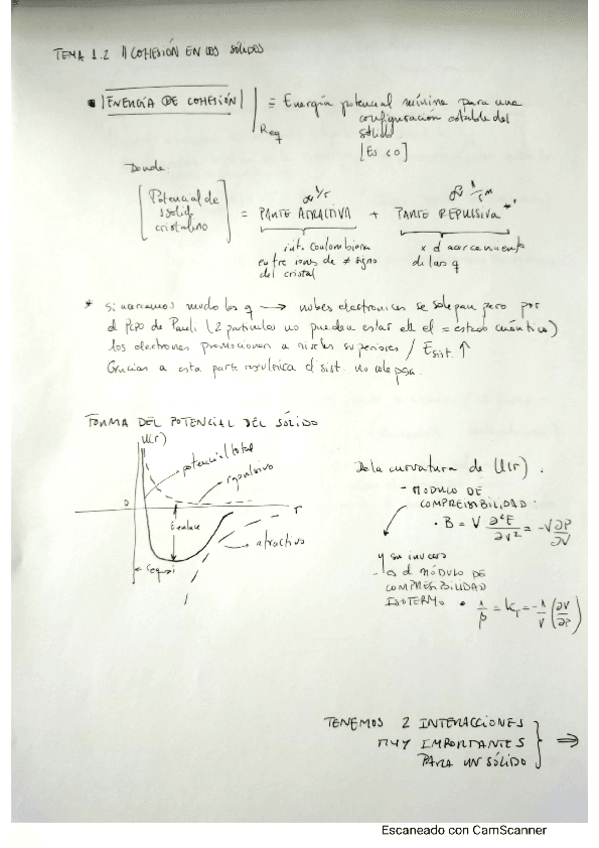 TEMA 1.2 // COHESIÓN EN LOS SÓLIDOS
• |ENERGÍA DE COHESIÓN| Req ≡ Energía potencial mínima para una
configuración estable del
sólido
[Es <0]
Donde:
[Potencial de
sólido
cristalino] = PARTE ATRACTIVA + PARTE REPULSIVA *
int. coulombiana
entre iones de ≠ signo
del cristal
x el acercamiento
de las q
* Si acercamos mucho las q → nubes electrónicas se solapan pero por
el Ppo de Pauli (2 partículas no pueden estar en el = estado cuántico)
los electrones promocionan a niveles superiores / Esist. ↑
Gracias a esta parte repulsiva el sist. no colapsa.
FORMA DEL POTENCIAL DEL SÓLIDO
U(r)
potencial total
repulsivo
0
r
Eenlace
atractivo
De la curvatura de U(r).
- MÓDULO DE
COMPRESIBILIDAD:
• B = V ∂²E/∂V² = -V ∂P/∂V
y su inverso
- es el MÓDULO DE
COMPRESIBILIDAD
ISOTERMO • 1/β = kT = -1/V (∂V/∂P)
TENEMOS 2 INTERACCIONES
MUY IMPORTANTES
PARA UN SÓLIDO } ⇒
Escaneado con CamScanner